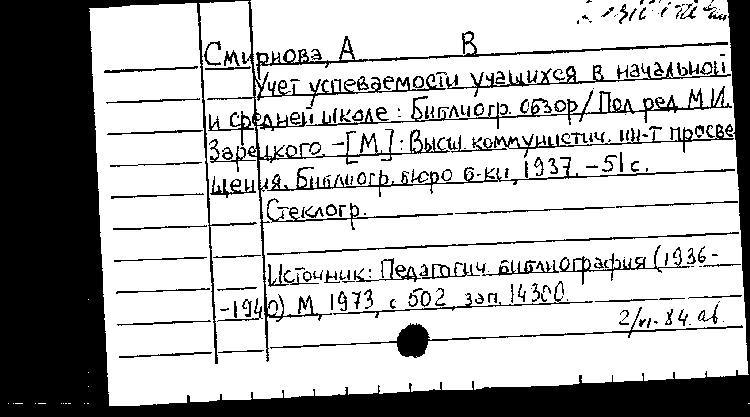 Смирнова, А В
Учет успеваемости учащихся в начальной
и средней школе : Библиогр. обзор / Под ред М.И.
Зарецкого. – [М.] : Высш. коммунистич. ин-т просве
щения. Библиогр. бюро б-ки, 1937. – 51 с.
Стеклогр.
Источник: Педагогич. библиография (1936-
-1940) М, 1973, с 502, зап. 14300.
2/VI-84. аб.